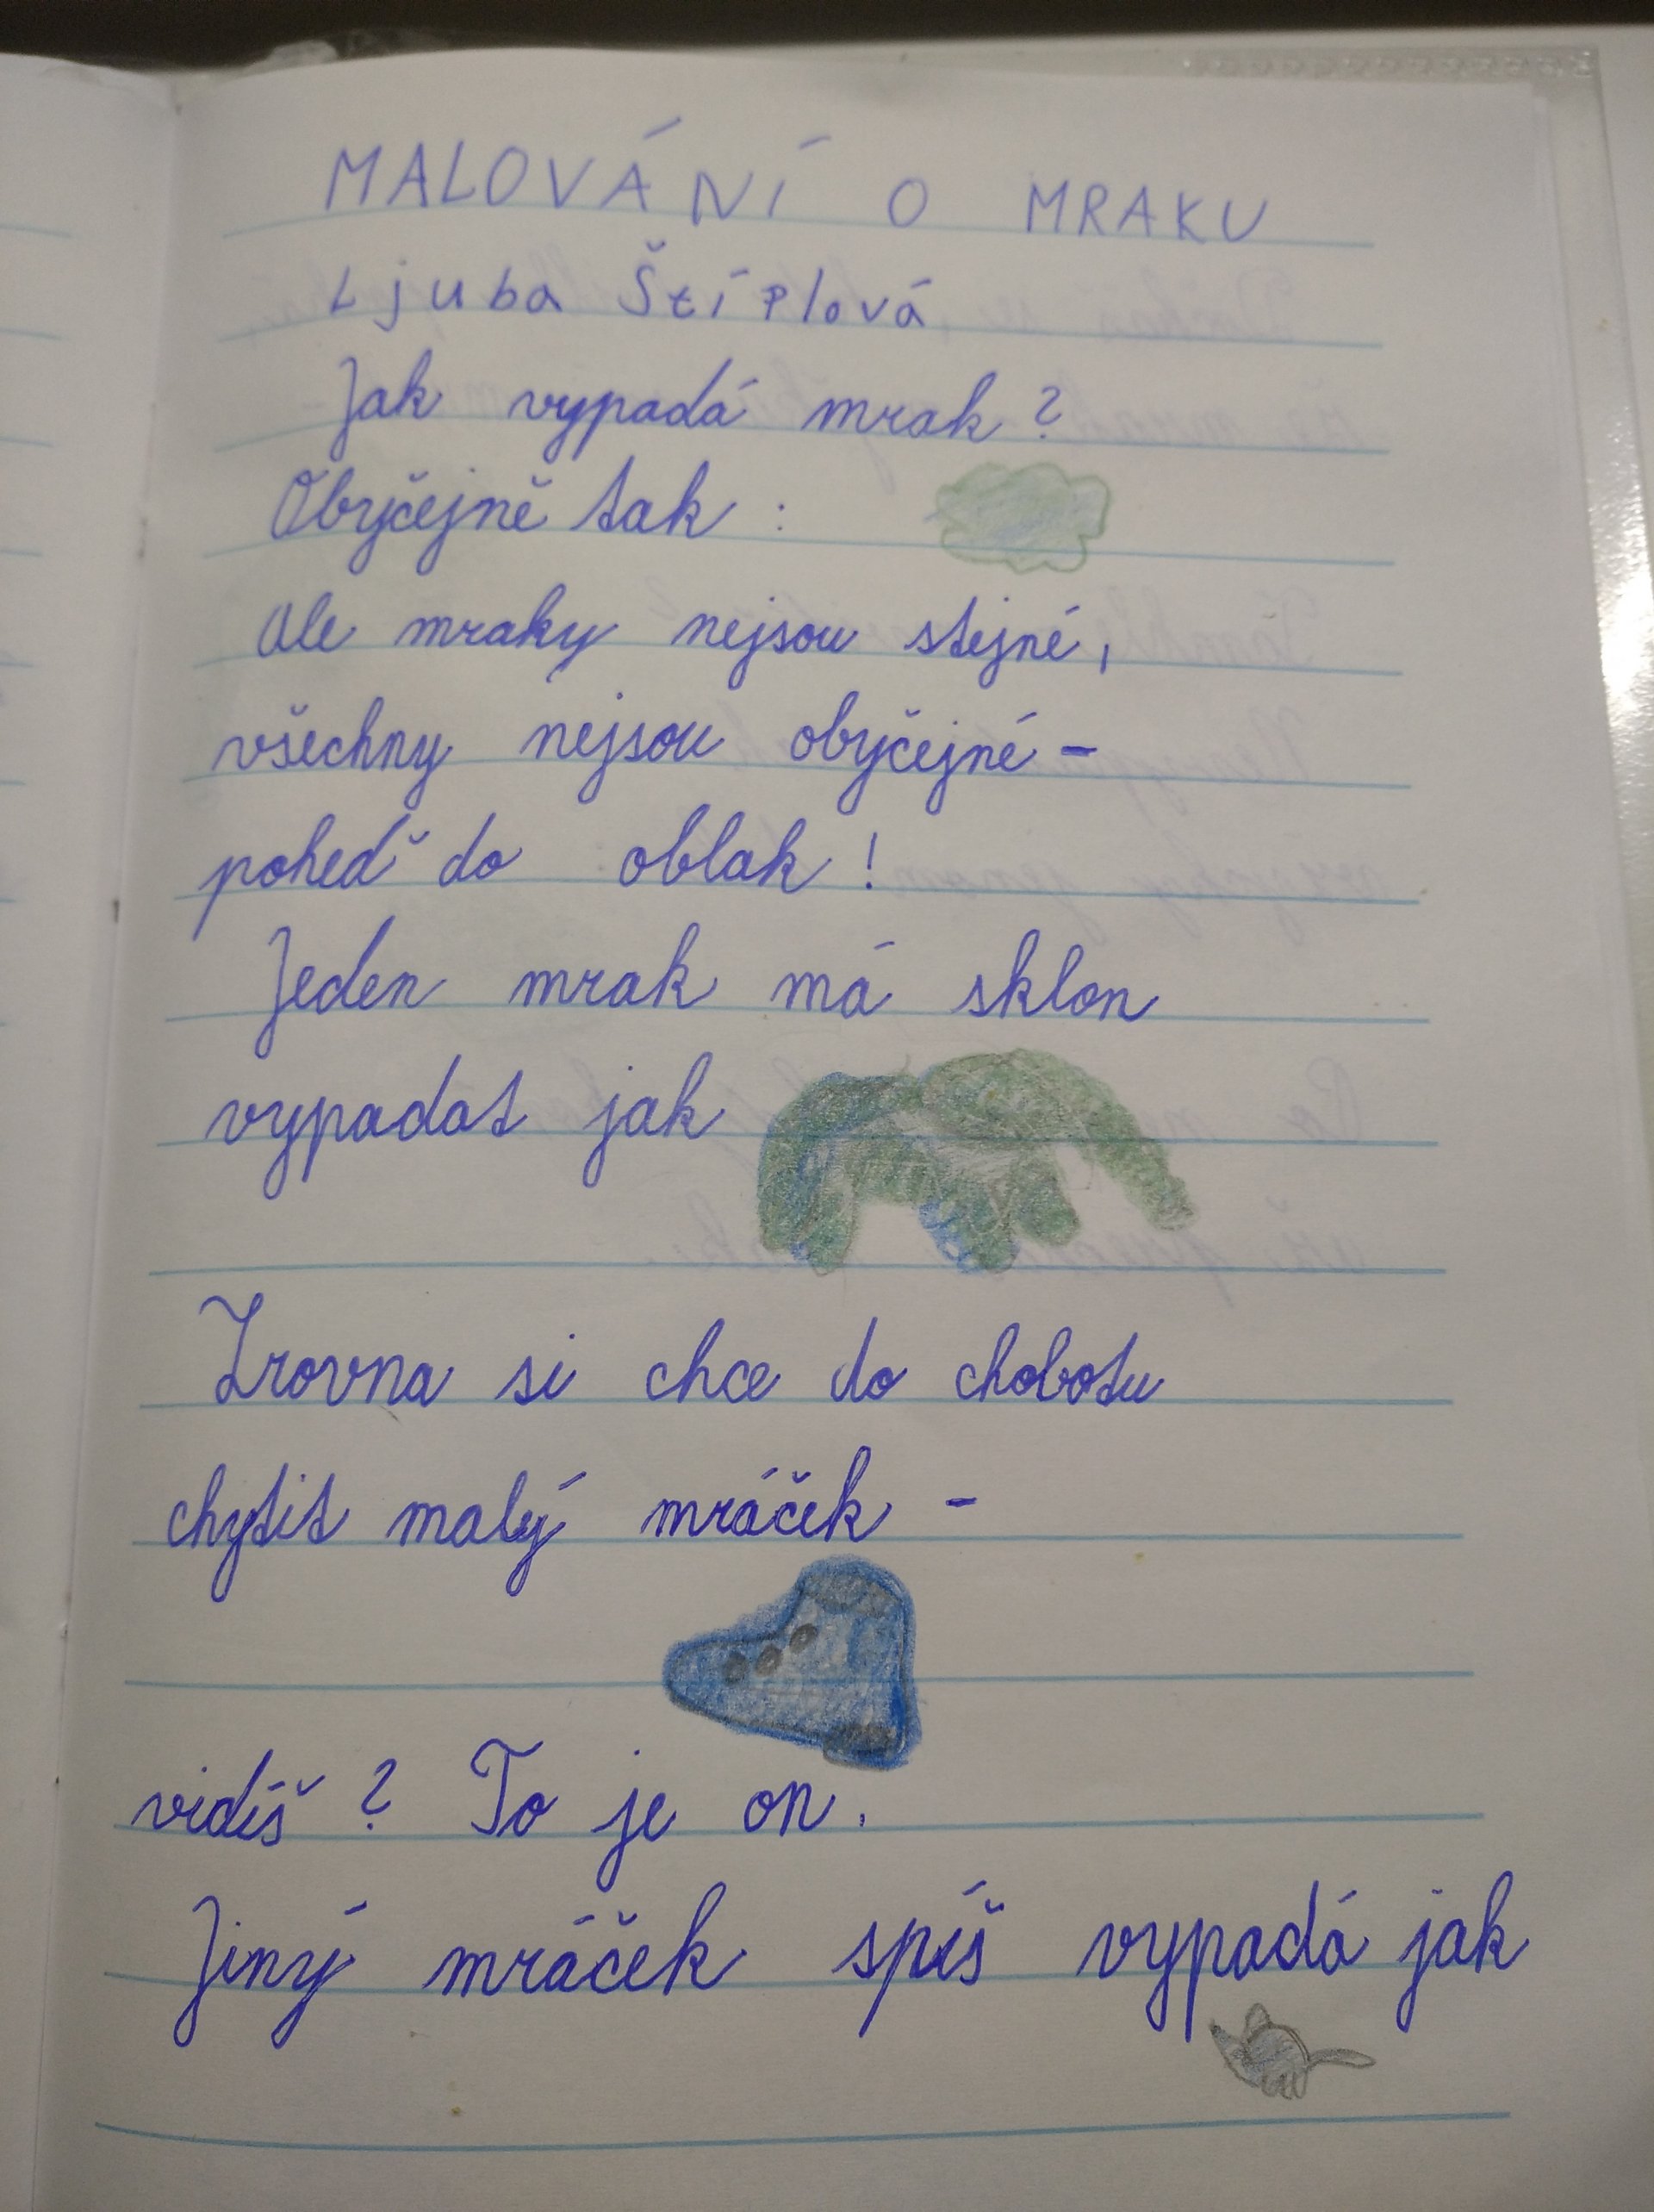 MALOVÁNÍ O MRAKU
Ljuba Štíplová
Jak vypadá mrak?
Obyčejně tak :
Ale mraky nejsou stejné,
všechny nejsou obyčejné -
poheď do oblak!
Jeden mrak má sklon
vypadat jak
Zrovna si chce do chobotu
chytit malý mráček -
vidíš? To je on.
Jiný mráček spíš vypadá jak